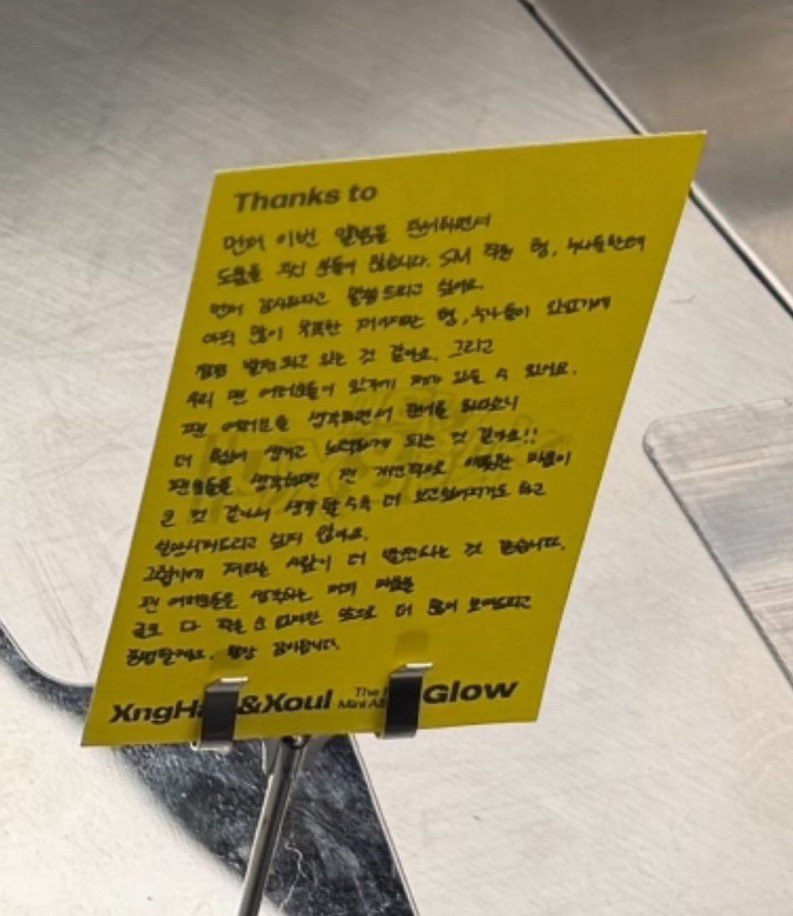 Thanks to
먼저 이번 앨범을 준비하면서
도움을 주신 분들이 많습니다. SM 직원 형, 누나들한테
먼저 감사하다고 말씀 드리고 싶어요.
아직 많이 부족한 저이지만 형, 누나들이 있었기에
점점 발전되고 있는 것 같아요. 그리고
우리 팬 여러분들이 있기에 제가 있을 수 있어요.
팬 여러분을 생각하면서 준비를 하다보니
더 힘이 생기고 노력하게 되는 것 같아요!!
팬분들을 생각하면 전 개인적으로 애틋한 마음이
큰 것 같아서 생각할수록 더 보고싶어지기도 하고
실망시켜드리고 싶지 않아요.
그렇기에 저라는 사람이 더 발전하는 것 같습니다.
팬 여러분들을 생각하는 저의 마음을
글로 다 적을 순 없지만 앞으로 더 많이 보여드리고
표현할게요. 항상 감사합니다.
&Xoul
Glow